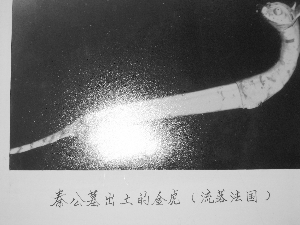 秦公墓出土的金虎（流落法国）